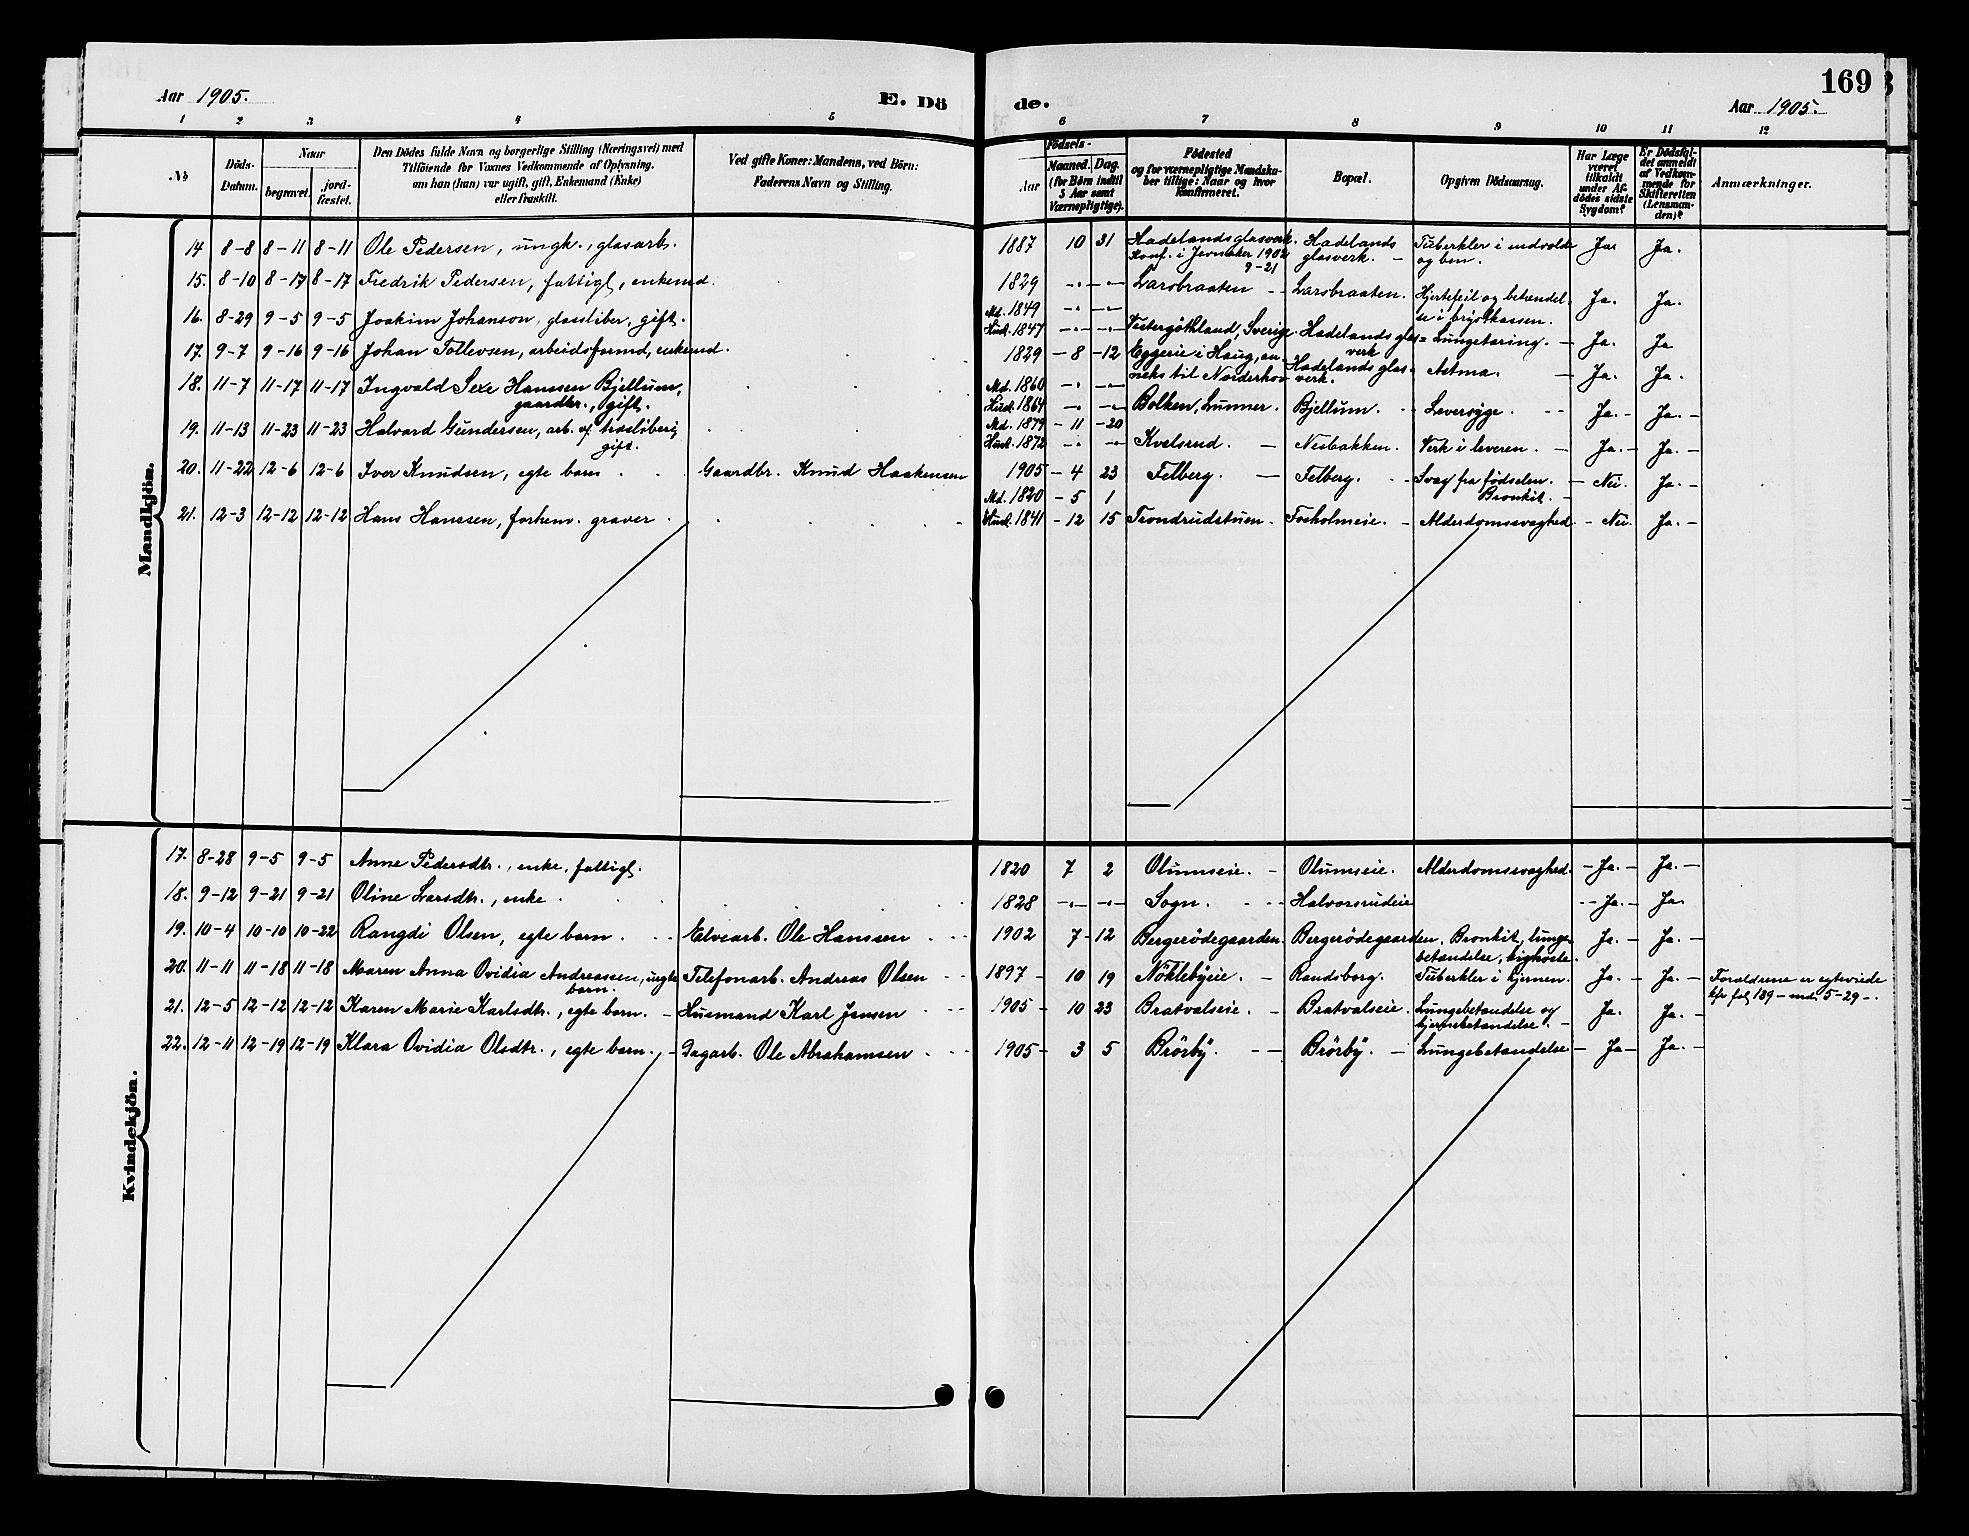 169
Aar 1905.
E. Dö
de.
Aar 1905.
1 2 3 4 5 6 7 8 9 10 11 12
№
Döds-Datum.
Naar
begravet.
jordfæstet.
Den Dödes fulde Navn og borgerlige Stilling (Næringsvei) med
Tilföiende for Voxnes Vedkommende af Oplysning,
om han (hun) var ugift, gift, Enkemand (Enke)
eller fraskilt.
Ved gifte Koner: Mandens, ved Börn:
Faderens Navn og Stilling.
Födsels-
Aar
Maaned. Dag.
(for Börn indtil
5 Aar samt
Værnepligtige).
Födested
og for værnepligtige Mandskaber tillige: Naar og hvor
Konfirmeret.
Bopæl.
Opgiven Dödsaarsag.
Har Læge
været
tilkaldt
under Afdödes sidste
Sygdom?
Er Dödsfaldet anmeldt
af Vedkommende for
Skifteretten
(Lensmanden)?
Anmærkninger.
Mandkjön.
14 8-8 8-11 8-11 Ole Pedersen, ungk., glasarb. 1887 10 31 Hadelands glasverk. Konf. i Jevnaker 1902 9-21 Hadelands glasverk. Tuberkler i indvolde og ben. Ja. Ja.
15. 8-10 8-17 8-17 Fredrik Pedersen, fattigl, enkemd. 1829 Larsbraaten Larsbraaten. Hjertefeil og betændelse i brystkassen. Ja. Ja.
16. 8-29 9-5 9-5 Joakim Johanson, glassliber, gift. Md. 1849 Hust. 1847 Vestergöthland, Sverige. Hadelands glasverk Lungetæring. Ja. Ja
17. 9-7 9-16 9-16 Johan Tollevsen, arbeidsformd, enkemd. 1829 8 12 Eggerie i Haug, anneks til Norderhov Hadelands glasverk. Astma. Ja. Ja.
18. 11-7 11-17 11-17 Ingvald Sexe Hanssen Bjellum, gaardbr., gift. Md. 1860 Hust. 1864 Bolken, Lunner. Bjellum. Leversyge. Ja. Ja.
19. 11-13 11-23 11-23 Halvard Gundersen, arb. v. træsliberi, gift. Md. 1879 11 20 Hust. 1872 Kvelsrud. Neibakken. Verk i leveren. Ja. Ja.
20. 11-22 12-6 12-6 Iver Knudsen, egte barn Gaardbr. Knud Haakensen 1905 4 23 Felberg. Felberg. Svag fra födselen. Bronkit. Nei. Ja.
21. 12-3 12-12 12-12 Hans Hanssen, forhenv. graver Md. 1820 5 1 Hust. 1841 12 15 Trondrudstuen. Fosholmeie. Alderdomssvaghed. Nei. Ja.
Kvindekjön.
17. 8-28 9-5 9-5 Anne Pedersdtr., enke, fattigl. 1820 7 2 Olumseie. Olumseie. Alderdomssvaghed. Ja. Ja.
18. 9-12 9-21 9-21 Oline Larsdtr., enke 1828 Sogn. Halvorsrudeie Ja. Ja.
19. 10-4 10-10 10-22 Rangdi Olsen, egte barn. Elvearb. Ole Hanssen 1902 7 12 Bergerödegaarden. Bergerödegaarden. Bronkit, lungebetændelse, kighoste. Ja. Ja.
20. 11-11 11-18 11-18 Maren Anna Ovidia Andreassen, uegte barn. Telefonarb. Andreas Olsen 1897 10 19 Nöklebyeie. Randsborg. Tuberkler i hjernen. Ja. Ja. Forældrene er egteviede kfr fol 189 - md. 5-29-.
21. 12-5 12-12 12-12 Karen Marie Karlsdtr., egte barn. Husmand Karl Jensen 1905 10 23 Bratvalseie. Bratvalseie. Lungebetændelse og hjernebetændelse. Ja. Ja.
22. 12-11 12-19 12-19 Klara Ovidia Olsdtr., egte barn. Dagarb. Ole Abrahamsen 1905 3 5 Brörby. Brörby. Lungebetændelse Ja Ja.